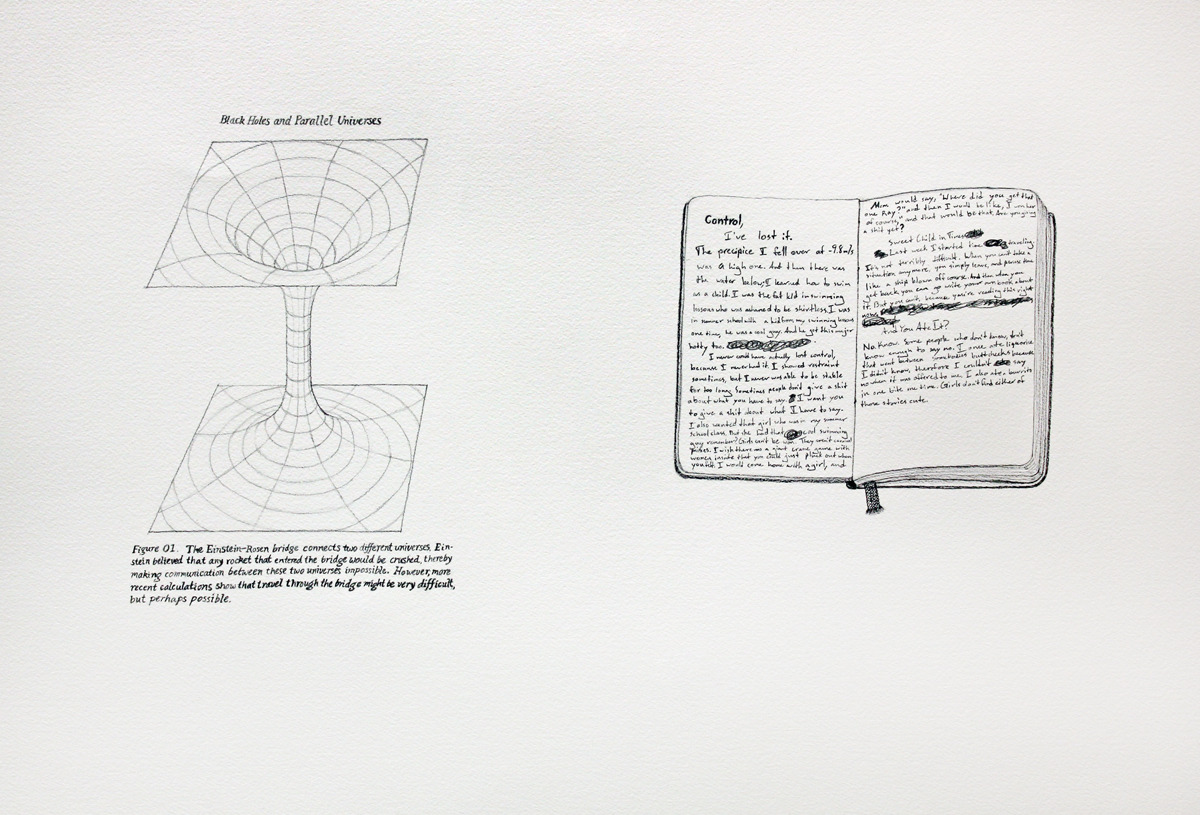 Black Holes and Parallel Universes
Figure 01. The Einstein-Rosen bridge connects two different universes. Ein-
stein believed that any rocket that entered the bridge would be crushed, thereby
making communication between these two universes impossible. However, more
recent calculations show that travel through the bridge might be very difficult,
but perhaps possible.
Control,
I've lost it.
The precipice I fell over at -9.8m/s
was a high one. And then there was
the water below; I learned how to swim
as a child. I was the fat kid in swimming
lessons who was ashamed to be shirtless. I was
in summer school with a kid from my swimming lessons
one time, he was a cool guy. And he got this major
hotty too.
I never could have actually lost control,
because I never had it. I showed restraint
sometimes, but I never was able to be stable
for too long. Sometimes people don't give a shit
about what you have to say. I want you
to give a shit about what I have to say.
I also wanted that girl who was in my summer
school class. But she had that cool swimming
guy remember? Girls can't be won. They aren't carnival
prizes. I wish there was a giant crane game with
women inside that you could just pluck out when
you felt. I would come home with a girl, and
Mom would say, "Where did you get that
one Ray?" and then I would be like, I won her
of course," and that would be that. Are you giving
a shit yet?
Sweet Child in Time
Last week I started time traveling.
It's not terribly difficult. When you can't take a
situation anymore, you simply leave, and peruse time
like a ship blown off course. And then when you
get back you can go write your own book about
it. But you can't, because you're reading this right
now.
And You Ate It?
No. Know. Some people who don't know, don't
know enough to say no. I once ate liquorice
that went between somebodies buttcheeks because
I didn't know, therefore I couldn't say
no when it was offered to me. I also ate a burrito
in one bite one time. Girls don't find either of
those stories cute.